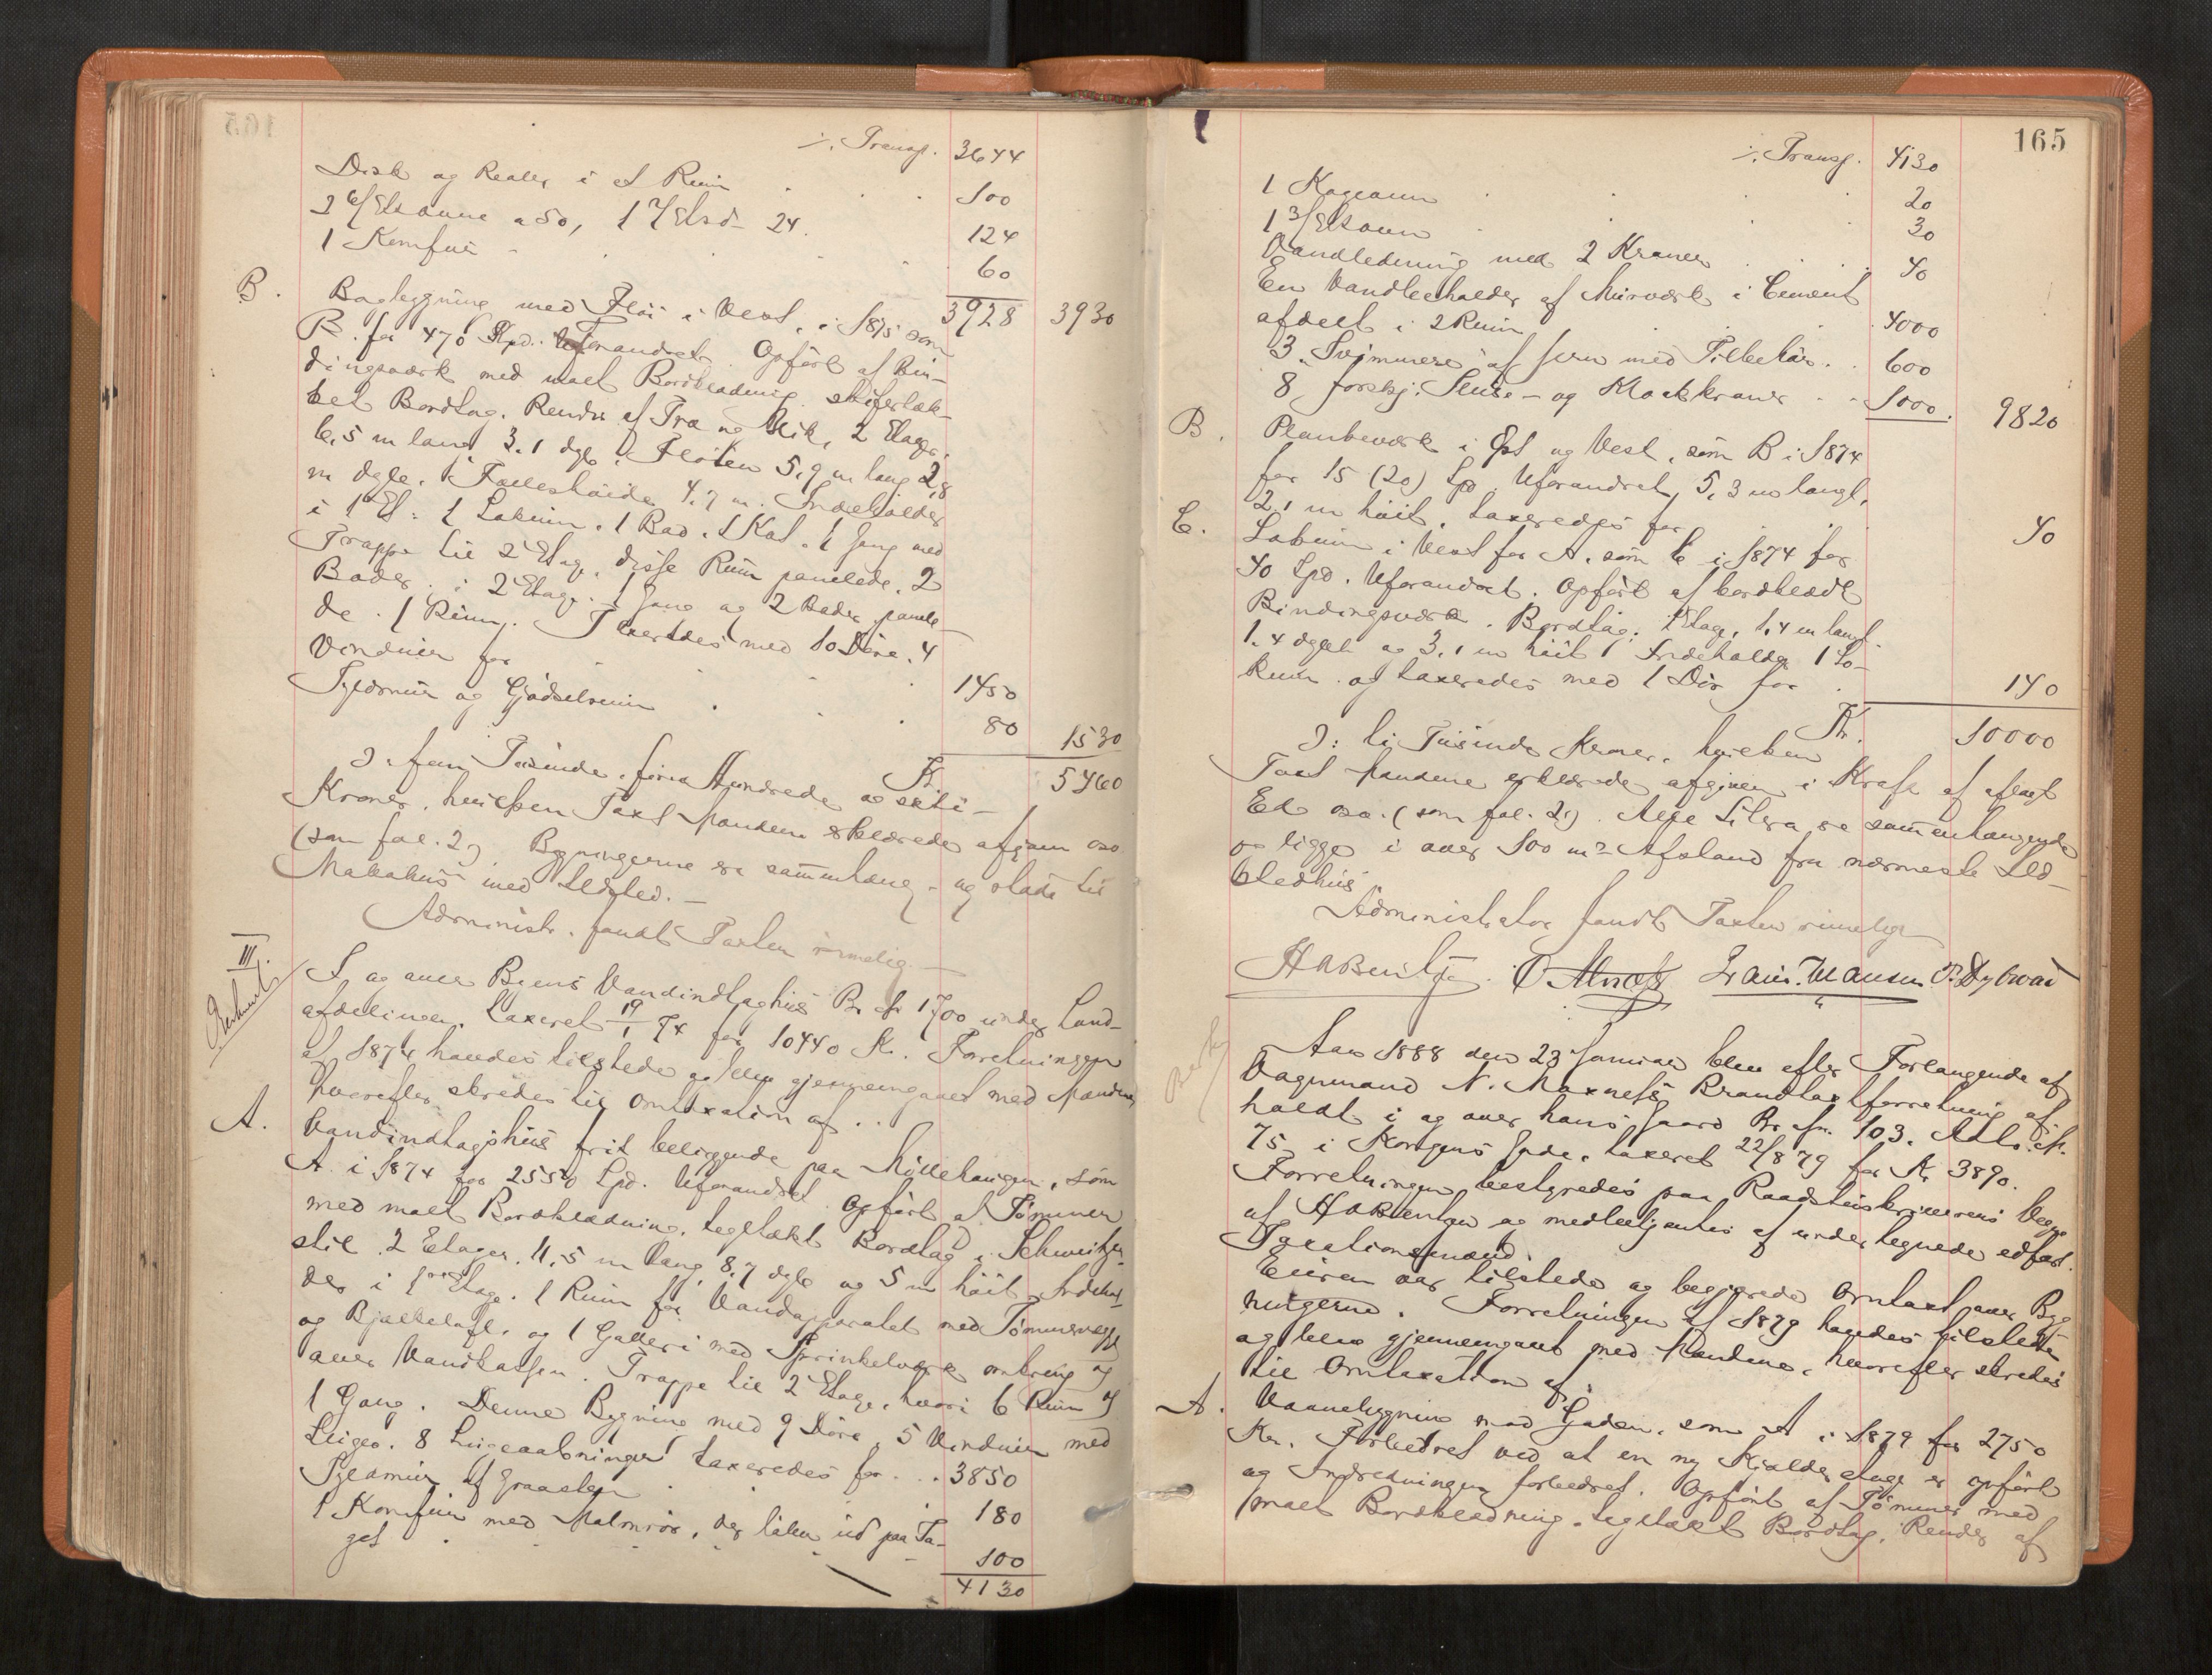 ⁒ Transp. 3644
Disk og Reoler i 1 Rum . . 100
2 6/Etsovne a 50, 1 7/Etsd- 24. 124
1 Komfur - . . . 60
3928 3930
B. Bagbygning med Fløi i Vest, i 1875 som
B. for 470 Spd. Uforandret. Opført af Bin-
dingsværk med malt Bordklædning, skifertæk-
ket Bordtag. Render af Træ og Blik, 2 Etager,
6,5 m lang 3.1 dyb, Fløien 5,9 m lang 2,8
m dyb. Fælleshøide 4.7 m. Indeholder
i 1 Et: 1 Lokum. 1 Bad. 1 Kot. 1 Gang med
Trappe til 2 Etage, disse Rum panelede. 2
Boder. i 2 Etage. 1 Gang og 2 Boder panele-
de. 1 Rum. Taxeredes med 10 Døre. 4
Vinduer for . . . 1450
Fyldmur og Gjødselrum . . . 80 1530
Kr. 5460
ɔ: fem Tusinde, fire Hundrede og seksti-
Kroner, hvilken Taxt Mændene erklærede afgiven oso
(som fol. 2) Bygningerne er sammenhæng- og stødte til
Nabohus med Ildsted. —
Administr. fandt Taxten rimelig —
III. I og over Byens Vandindtaghus Br. № 1700 under Land-
afdelingen, taxeret 19/1 74 for 10440 Kr. Forretningen
af 1874 havdes tilstede og blev gjennemgaaet med Mændene,
hvorefter skredes til Omtaxation af . .
A. Vandindtagshus frit beliggende paa Møllehaugen, som
A. i 1874 for 2550 Spd. Uforandret. Opført af Tømmer
med malt Bordklædning, tegltækt Bordtag i Schweitzer-
stil. 2 Etager. 11,5 m lang 8.7 dyb og 5 m høit. Indehol-
der i 1ste Etage. 1 Rum for Vandapparatet med Tømmervægge
og Bjælkeloft, og 1 Galleri med Sprinkelværk omkring og
over Vandkassen. Trappe til 2 Etage, hvori 6 Rum og
1 Gang. Denne Bygning med 9 Døre, 5 Vinduer med
Luger. 8 Lugeaabninger taxeredes for . . . 3850
Fyldmur af Graasten . . 180
1 Komfur med Malmrør, der løber ud paa Ta-
get . . . . . 100
4130
165
⁒ Transp. 4130
1 Kogeovn . . . 20
1 3/Etsovn . . . 30
Vandledning med 2 Kraner . . . 40
En Vandbeholder af Murværk i Cement
afdelt i 2 Rum . . . 4000
3 Svømmere af Jern med Tilbehør. . 600
8 forskj. Sluse- og Kloakkraner . . 1000. 9820
B. Plankeværk i Øst og Vest, som B i 1874
for 15 (20) Spd. Uforandret, 5,3 m langt,
2,1 m høit, taxeredes for . . . 40
C. Lokum i Vest for A. som C i 1874 for
40 Spd. Uforandret. Opført af bordklædt
Bindingsværk. Bordtag. 1 Etage, 1,4 m langt
1.4 dybt og 3,1 m høit. Indeholder 1 Lo-
kum og taxeredes med 1 Dør for . 140
Kr. 10000
ɔ: ti Tusinde Kroner, hvilken
Taxt Mændene erklærede afgiven i Kraft af aflagt
Ed oso. (som fol. 2). Alle Litra er sammenhængende
og ligge i over 100 m Afstand fra nærmeste Ild-
stedhus
Administrator fandt Taxten rimelig
HABerntzen. Laur. Hansen P. Dybwad
Aar 1888 den 23 Januar blev efter Forlangende af
Vognmand N. Maxnæss Brandtaxtforretning af-
holdt i og over hans Gaard Br. № 103. Mtr. №.
75 i Kongens Gade, taxeret 22/8 79 for Kr 3890.
Forretningen bestyredes paa Raadstuskriverens Vegne
af HABerntzen og medbetjentes af undertegnede edfæst.
Taxationsmænd.
Eieren var tilstede og begjærede Omtaxt over Byg-
ningerne. Forretningen af 1879 havdes tilstede
og blev gjennemgaaet med Mændene, hvorefter skredes
til Omtaxation af:
A. Vaanebygning mod Gaden, som A i 1879 for 2750
Kr. Forbedret ved at en ny Kjælderetage er opført
og Indretningen forbedret. Opført af Tømmer med
malt Bordklædning, tegltækt Bordtag, Render af